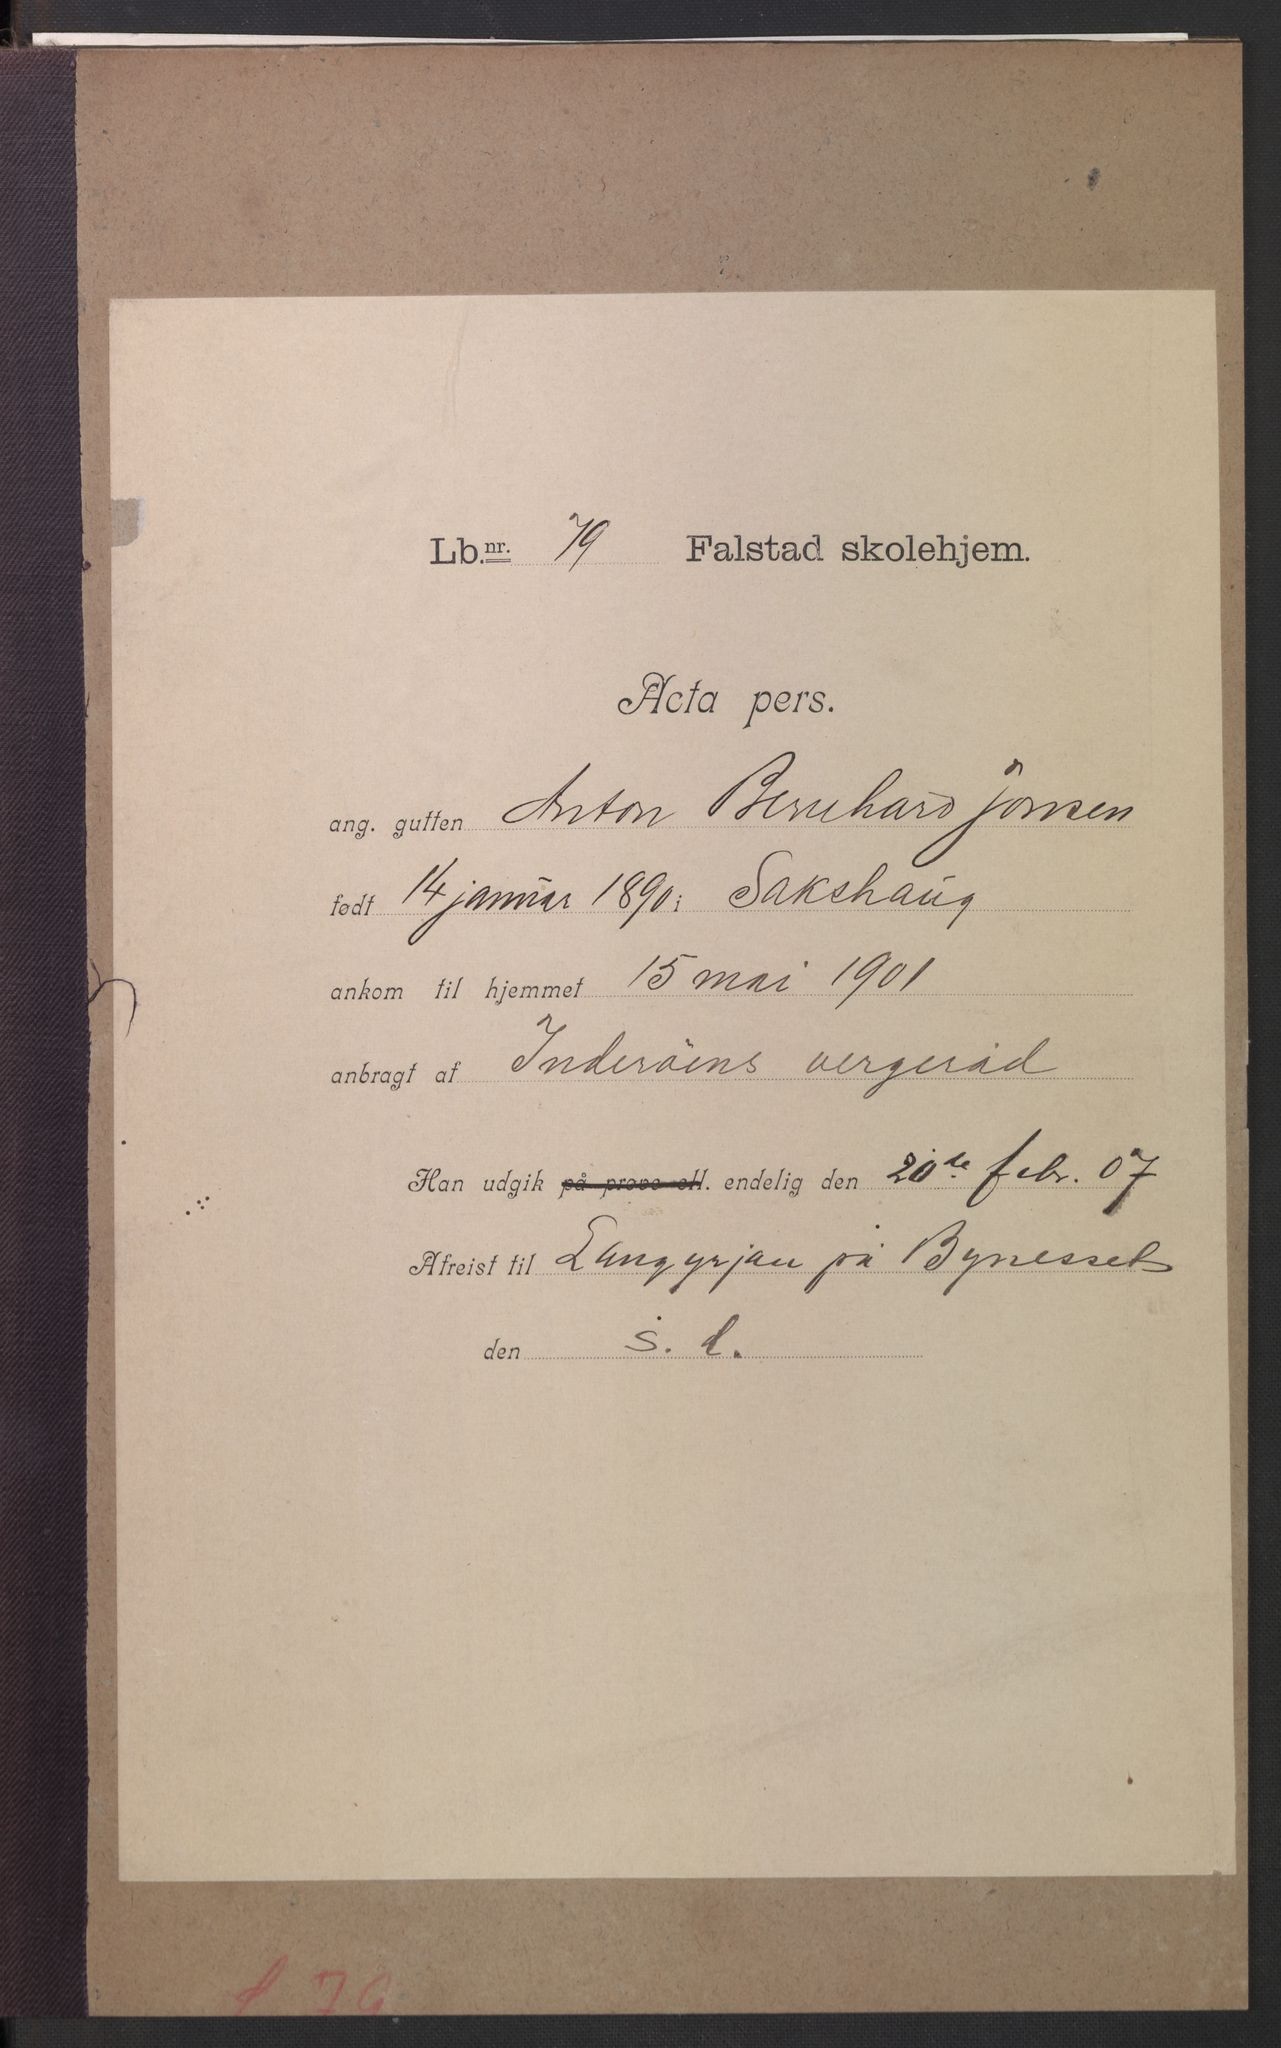 Lb.nr. 79 Falstad skolehjem.
Acta pers.
ang. gutten Anton Bernhard Jonsen
født 14 januar 1890 i Sakshaug
ankom til hjemmet 15 mai 1901
anbragt af Inderöens vergeråd
Han udgik på prøve ell. endelig den 20de febr. 07
Afreist til Langyrjan på Bynesset
den s. d.
f 79